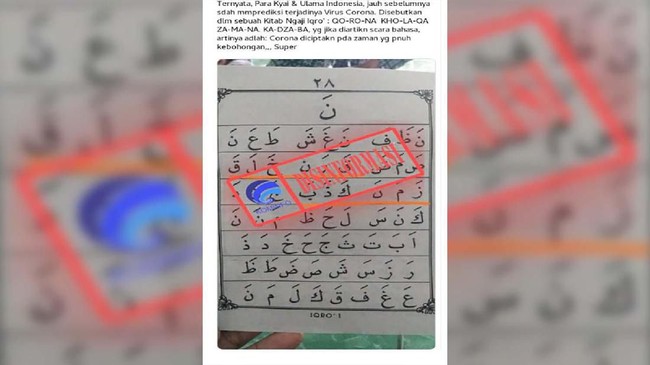 Ternyata, Para Kyai & Ulama Indonesia, jauh sebelumnya
sdah mmprediksi terjadinya Virus Corona. Disebutkan
dlm sebuah Kitab Ngaji Iqro' : QO-RO-NA KHO-LA-QA
ZA-MA-NA. KA-DZA-BA, yg jika diartikn scara bahasa,
artinya adlah: Corona diciptakn pda zaman yg pnuh
kebohongan,,, Super
٢٨
نَ
نَ ظَ فَ نَ غَ شَ طَ عَ نَ
نَ خَ لَ قَ
زَ مَ نَ كَ ذَ بَ
كَ نَ سَ لَ حَ ظَ
اَ بَ تَ ثَ جَ حَ خَ دَ ذَ
رَ زَ سَ شَ صَ ضَ طَ ظَ
عَ غَ فَ قَ كَ لَ مَ نَ
IQRO' 1
DISINFORMASI
KOMINFO